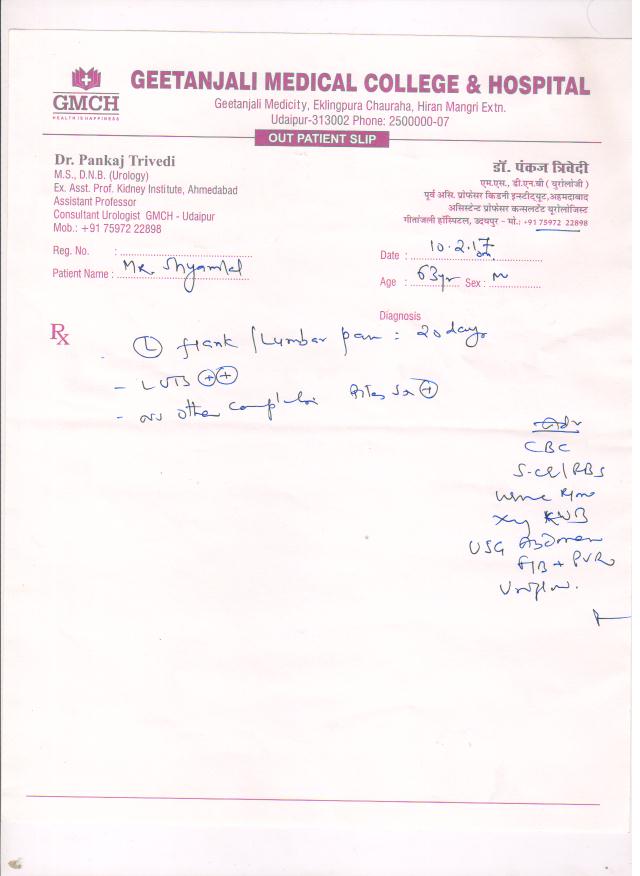 GMCH
HEALTH IS HAPPINESS
GEETANJALI MEDICAL COLLEGE & HOSPITAL
Geetanjali Medicity, Eklingpura Chauraha, Hiran Mangri Extn.
Udaipur-313002 Phone: 2500000-07
OUT PATIENT SLIP
Dr. Pankaj Trivedi
M.S., D.N.B. (Urology)
Ex. Asst. Prof. Kidney Institute, Ahmedabad
Assistant Professor
Consultant Urologist GMCH - Udaipur
Mob.: +91 75972 22898
डॉ. पंकज त्रिवेदी
एम.एस., डी.एन.बी ( युरोलॉजी )
पूर्व असि. प्रोफेसर किडनी इन्स्टीट्यूट,अहमदाबाद
असिस्टेन्ट प्रोफेसर कन्सलटेंट यूरोलोजिस्ट
गीतांजली हॉस्पिटल, उदयपुर - मो.: +91 75972 22898
Reg. No. :
Date : 10.2.17
Patient Name : Mr. Shyamlal
Age : 63yr Sex : M
Diagnosis
Rx
L flank / Lumbar pain : 20 days
- LUTS ++
- no other complain +
Adv
CBC
S.cr/RBS
Urine R/m
Xray KUB
USG Abdomen
+ PVR
Uroflow.